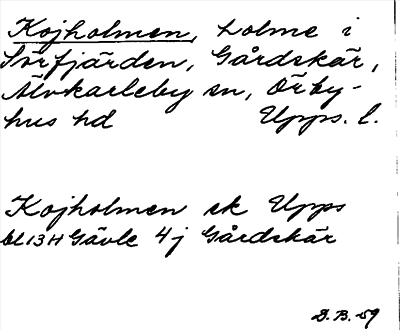 Kojholmen, holme i
Sörfjärden, Gårdskär,
Älvkarleby sn, Örby-
hus hd Upps. l.
Kojholmen ek Upps
bl 13H Gävle 4j Gårdskär
D.B. 59